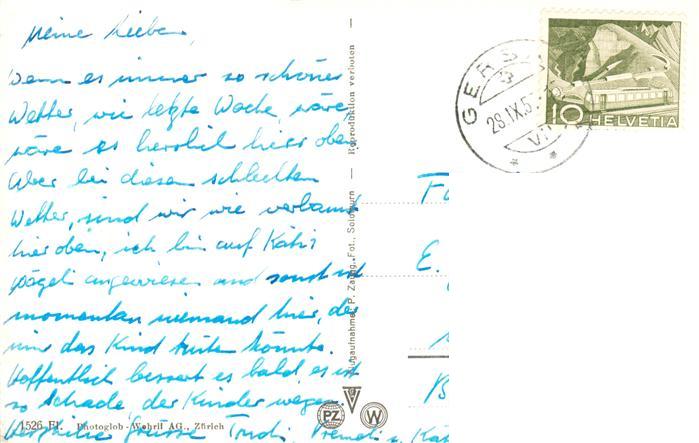 Meine Lieben,
Wenn es immer so schönes
Wetter, wie letzte Woche wäre,
wäre es herrlich hier oben.
Aber bei diesem schlechten
Wetter, sind wir wie verbannt
hier oben, ich bin auf Käthi
Vögeli angewiesen und sonst ist
momentan niemand hier, der
mir das Kind hüten könnte.
Hoffentlich bessert es bald, es ist
so schade, der Kinder wegen.
Herzliche Grüsse Trudi, Vreneli u. Kät
1526 Fl. Photoglob-Wehrli AG., Zürich
Flugaufnahme: P. Zaugg, Fot., Solothurn — Reproduktion verboten
PZ W
GERS
28.IX.5
10 HELVETIA
E.
B